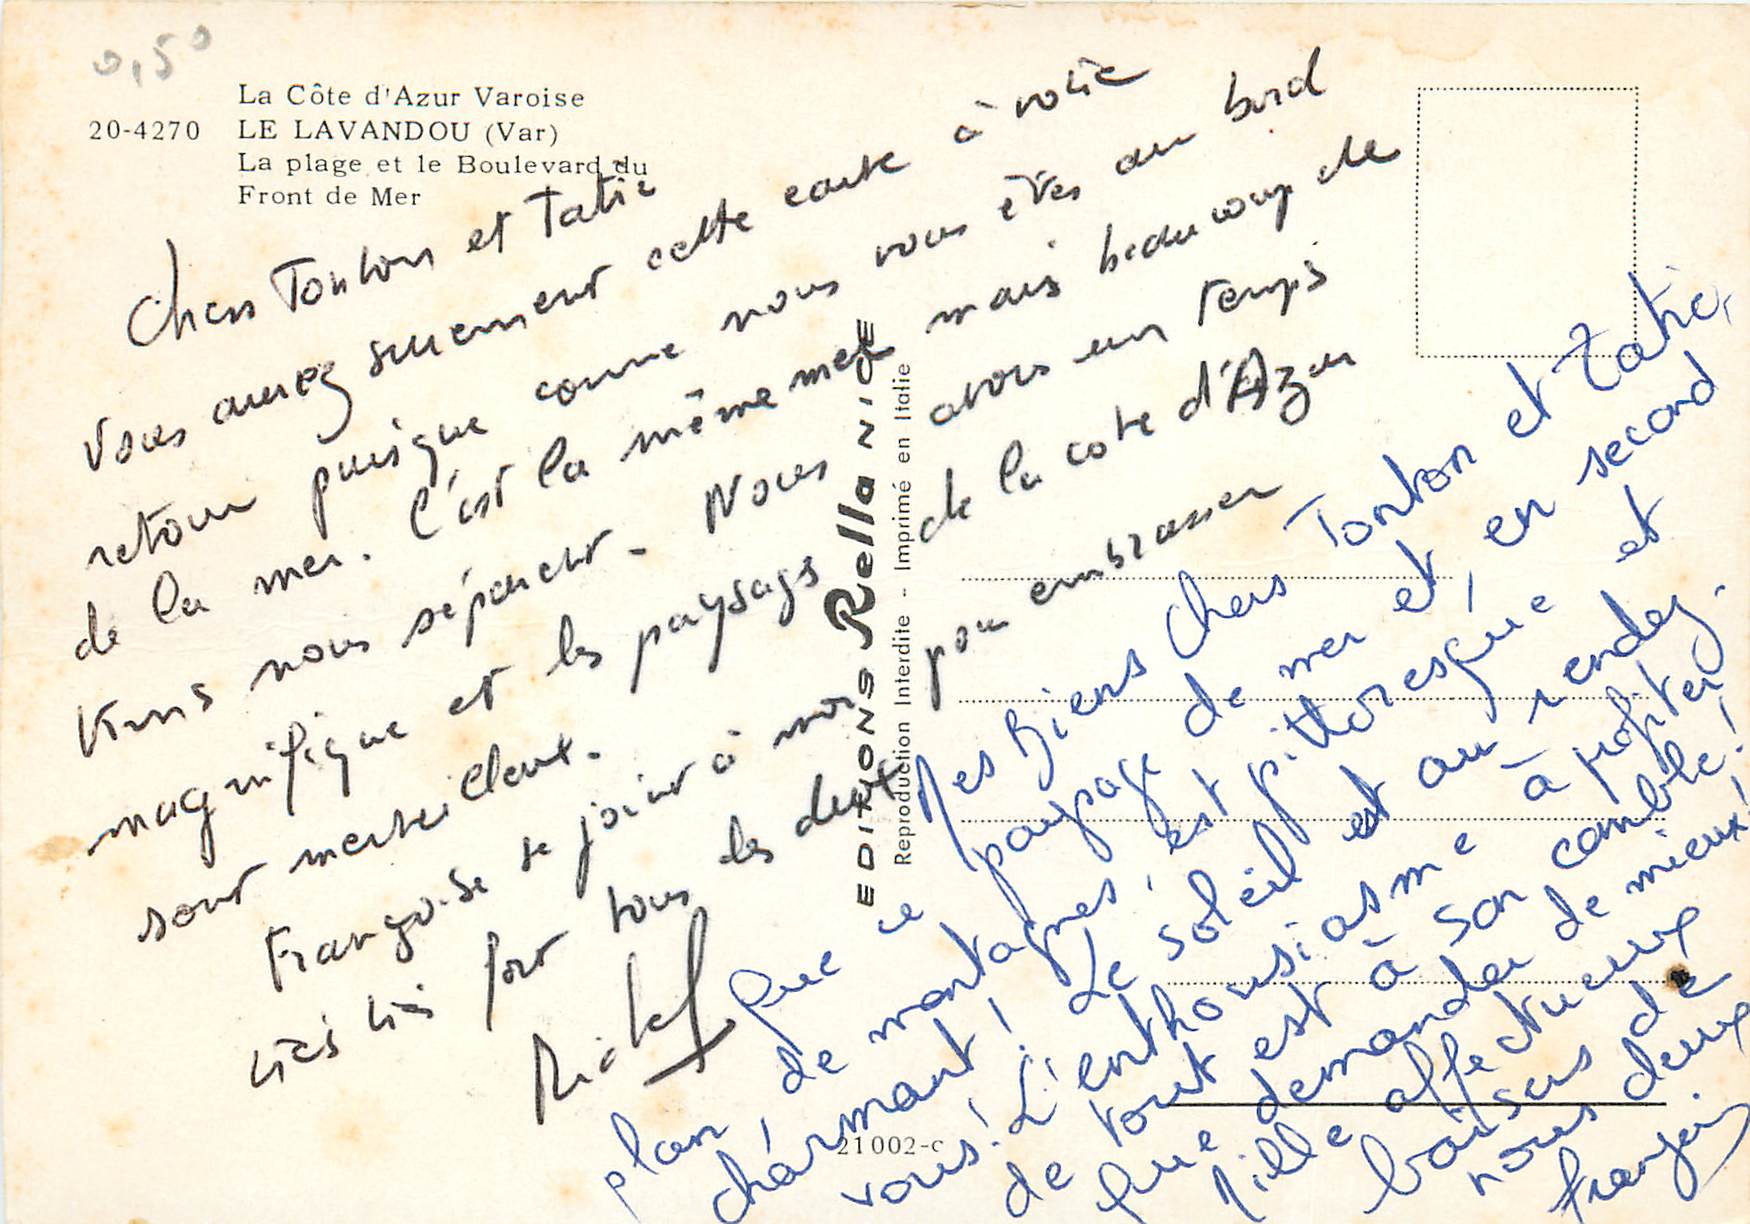 0,50
La Côte d'Azur Varoise
20-4270 LE LAVANDOU (Var)
La plage et le Boulevard du
Front de Mer
Chers Tonton et Tatie
Vous aurez surement cette carte à votre
retour puisque comme nous vous êtes au bord
de la mer. C'est la même mer mais beaucoup de
Kms nous séparent. Nous avons un temps
magnifique et les paysages de la cote d'Azur
sont merveilleux.
Françoise se joint à moi pour embrasser
très très fort tous les deux
Michel
EDITIONS Rella NICE
Reproduction Interdite - Imprimé en Italie
Mes Biens Chers Tonton et Tatie,
Que ce paysage de mer et, en second
plan de montagnes, est pittoresque et
charmant! Le soleil est au rendez-
vous! L'enthousiasme à profiter
de tout est à son comble!
Que demander de mieux!
Mille affectueux
baisers de
nous deux
Françoise
21002-c